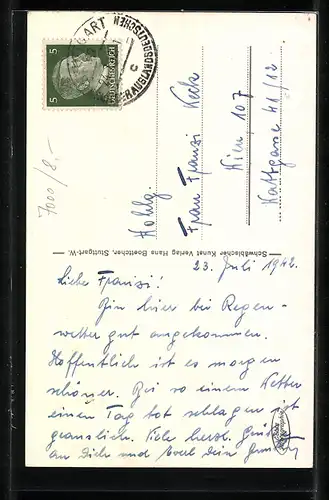 GART
AUSLANDSDEUTSCHEN
C
5 5
DEUTSCHES REICH
7000/8.-
Wohlg.
Frau Franzi
Wien 107
41/12
Schwäbischer Kunst Verlag Hans Boettcher, Stuttgart-W.
23. Juli 1942.
Liebe Franzi!
Bin hier bei Regen-
wetter gut angekommen.
Hoffentlich ist es morgen
schöner. Bei so einem Wetter
einen Tag tot schlagen ist
grauslich. Viele herzl. Grüße
an Dich und Dein